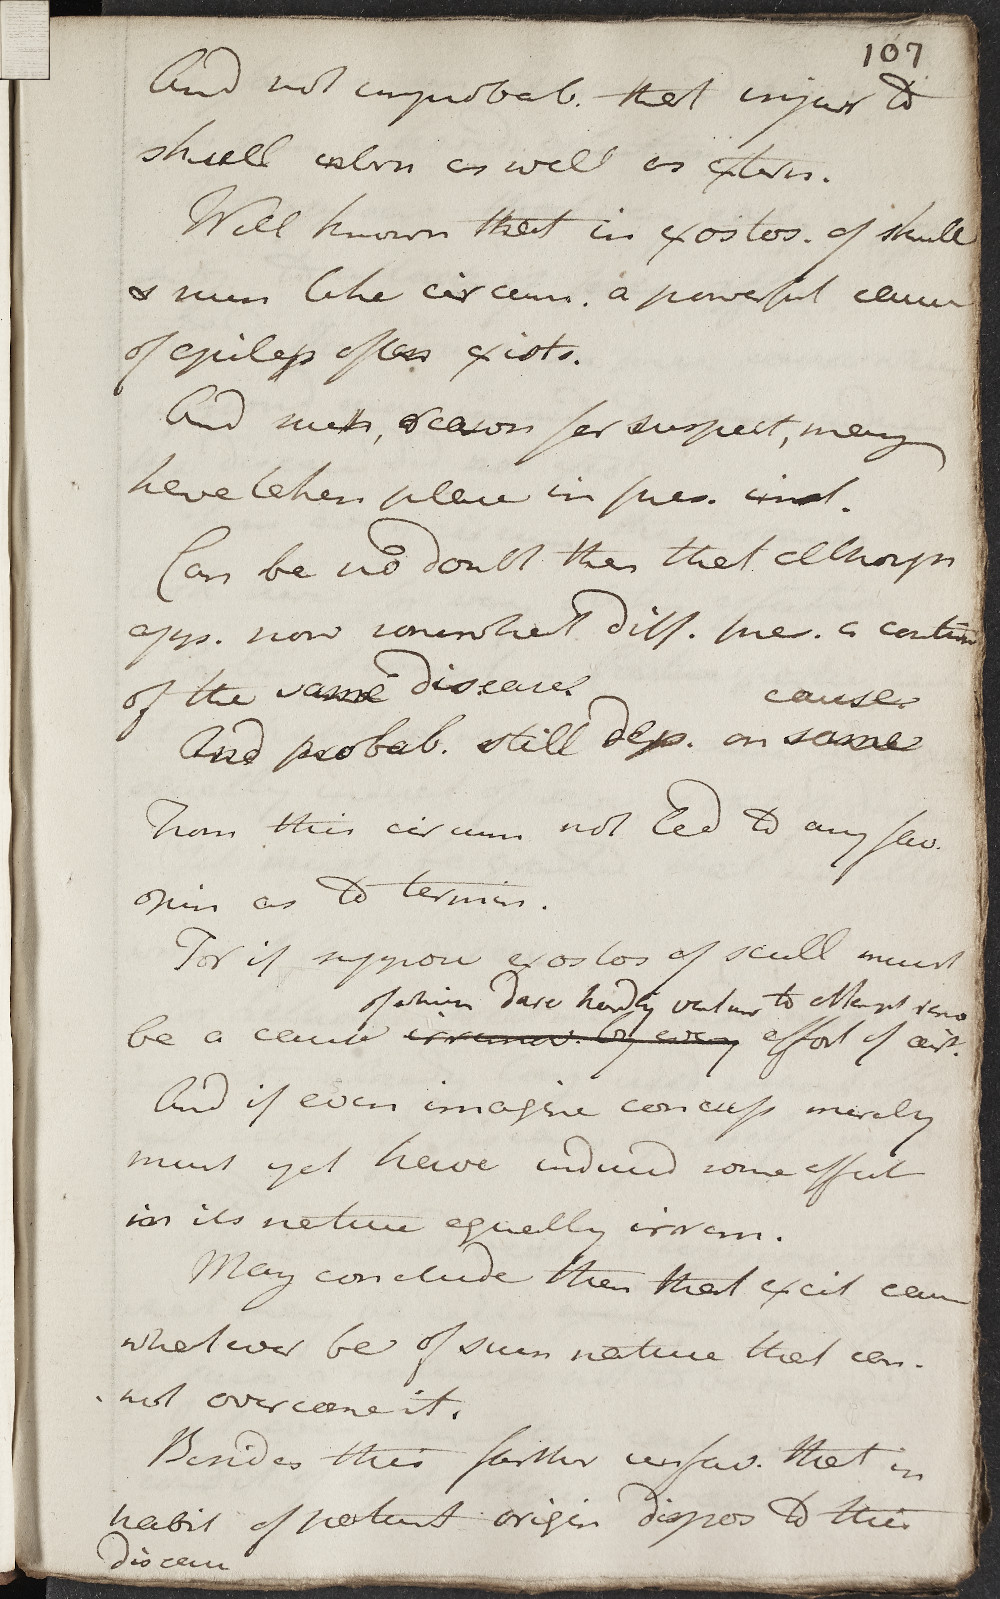 107
And not improbab. that injur to
skull intern as well as extern.
Well known that in exostos. of skull
& such like circum. a powerful cause
of epileps often exists.
And such, reason for suspect, may
have taken place in pres. inst.
Can be no doubt then that altho symp
app. now somewhat diff. pres. a contin
of the same disease
And probab. still dep. on same cause.
From this circum not led to any fav.
opin as to termin.
For if suppose exostos of scull must
of which dare hardly ventur to attempt remo
be a cause irremov. by every effort of art.
And if even imagine concuss merely
must yet have induced some effect
in its nature equally irrem.
May conclude then that excit cause
whatever be of such nature that can-
not overcome it.
Besides this farther unfav. that in
habit of patient origin dispos to this
disease